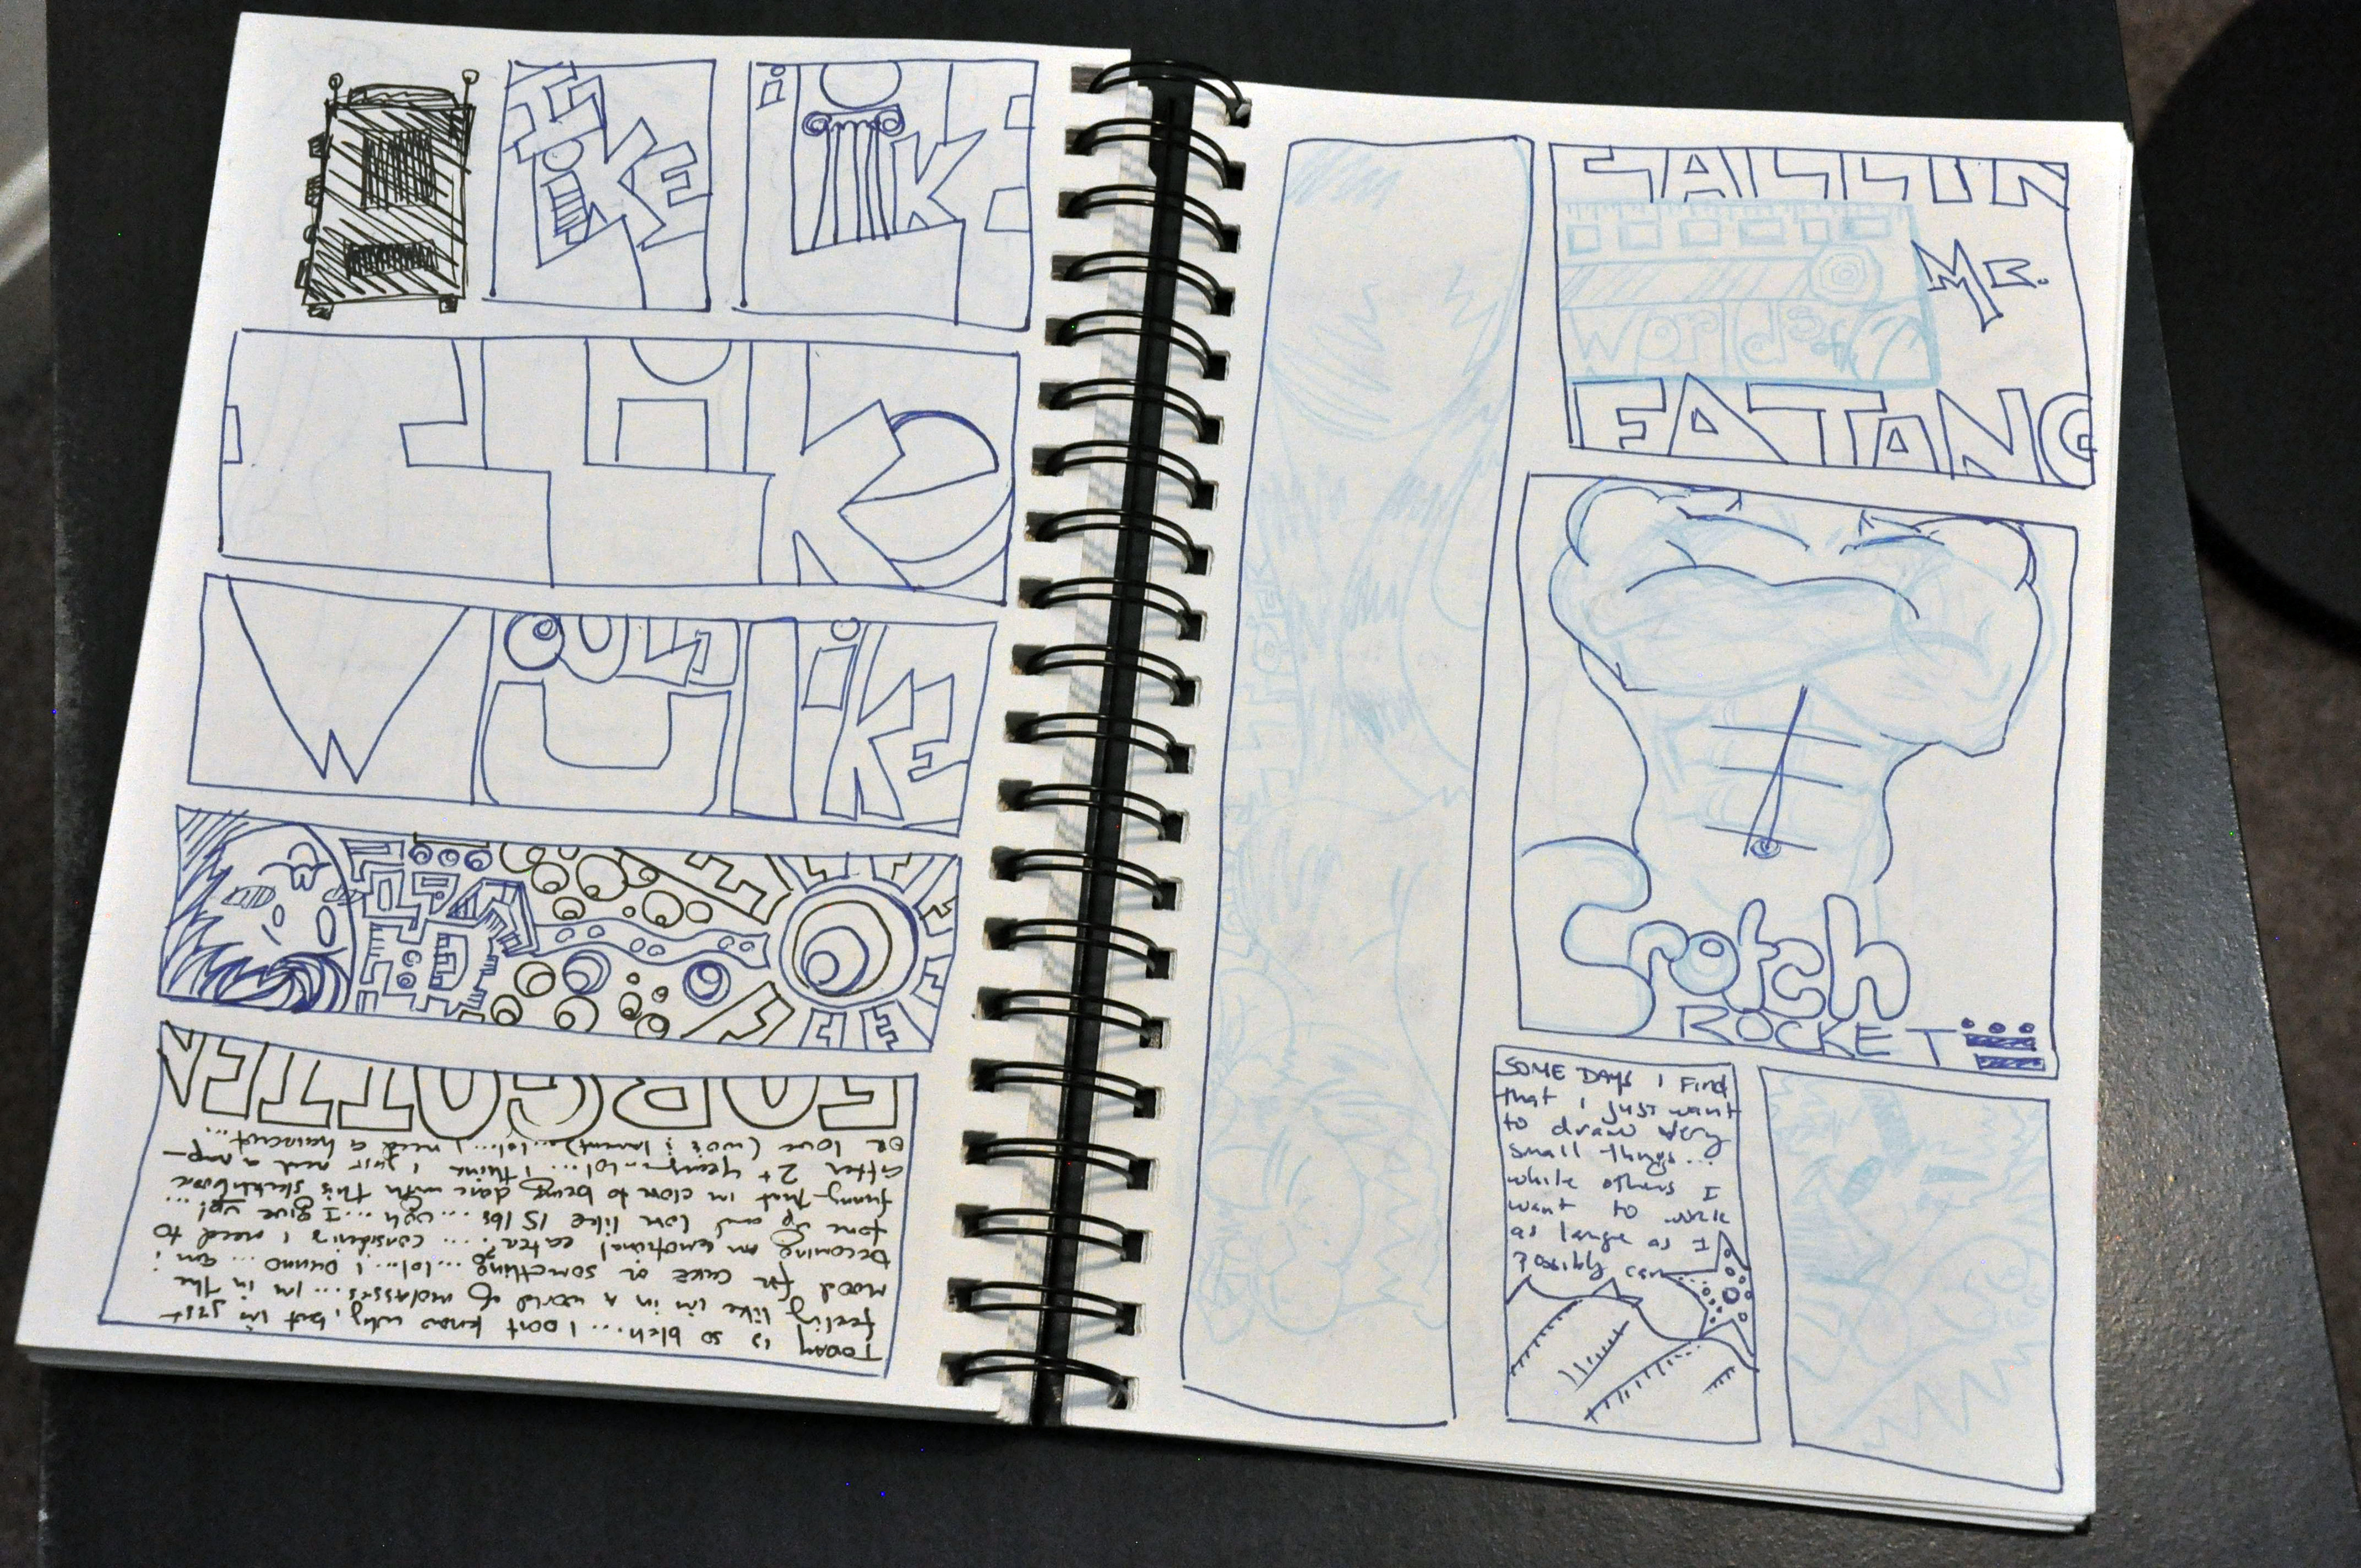 I
LIKE
i
LIK
WOULD
U
LIKE
Today is so bleh... I dont know why, but im just
feeling like im in a world of molasses... im in the
mood for cake or something...lol... I Dunno... am i
becoming an emotional eater?.... considering I need to
tone up and lose like 15 lbs.... ugh.... I give up!...
funny that im close to being done with this sketchbook
after 2+ years...lol... I think I just need a nap-
or love (...lol... I need a haircut...
FORGOTTEN
CALLIN
MR.
Worlds of
FATANG
Crotch
ROCKET
SOME DAYS I FIND
that I just want
to draw very
small things...
while others I
want to work
as large as I
possibly can....